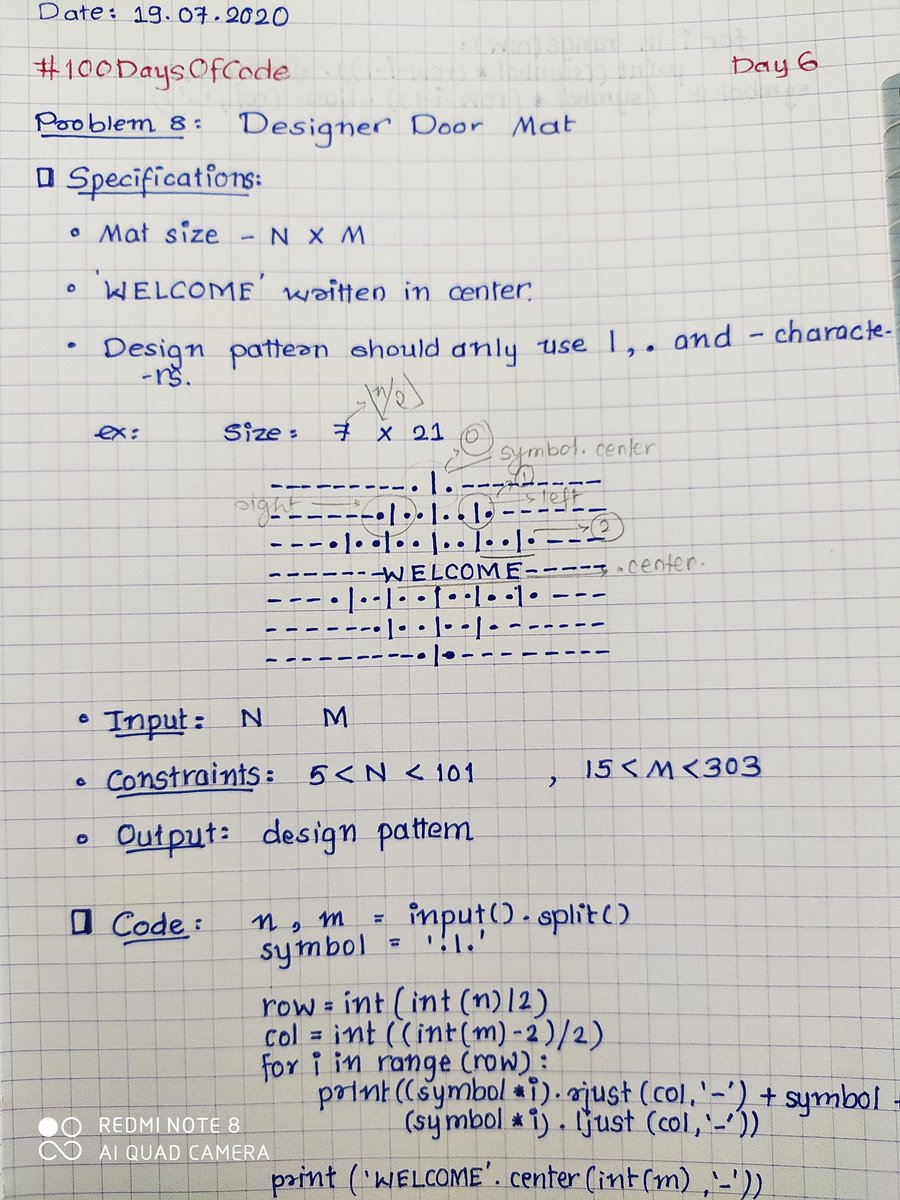 Date: 19.07.2020
#100DaysOfCode Day 6
Problem 8: Designer Door Mat
Specifications:
• Mat size - N X M
• 'WELCOME' written in center.
• Design pattern should only use |, . and - characte-
-rs.
n/2
ex: Size: 7 X 21
0 symbol.center
---------.|.---------
right 1 left
------.|..|..|.------
---.|..|..|..|..|.--- 2
-------WELCOME------- .center.
---.|..|..|..|..|.---
------.|..|..|.------
---------.|.---------
• Input: N M
• Constraints: 5 < N < 101 , 15 < M < 303
• Output: design pattern
Code: n, m = input().split()
symbol = '.|.'
row = int(int(n)/2)
col = int((int(m)-2)/2)
for i in range(row):
print((symbol*i).rjust(col,'-') + symbol +
(symbol*i).ljust(col,'-'))
REDMI NOTE 8
AI QUAD CAMERA
print('WELCOME'.center(int(m),'-'))